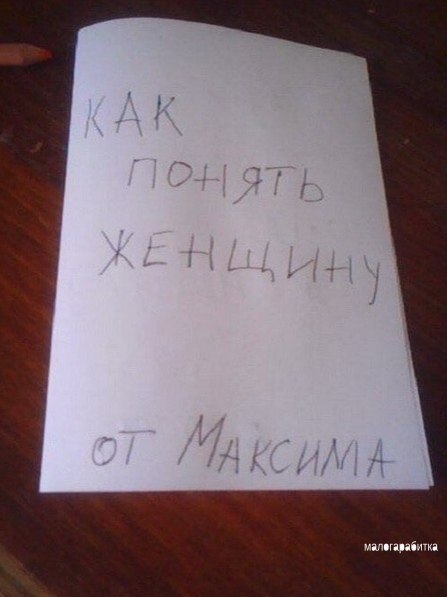 КАК
ПОНЯТЬ
ЖЕНЩИНУ
ОТ МАКСИМА
малогарабитка